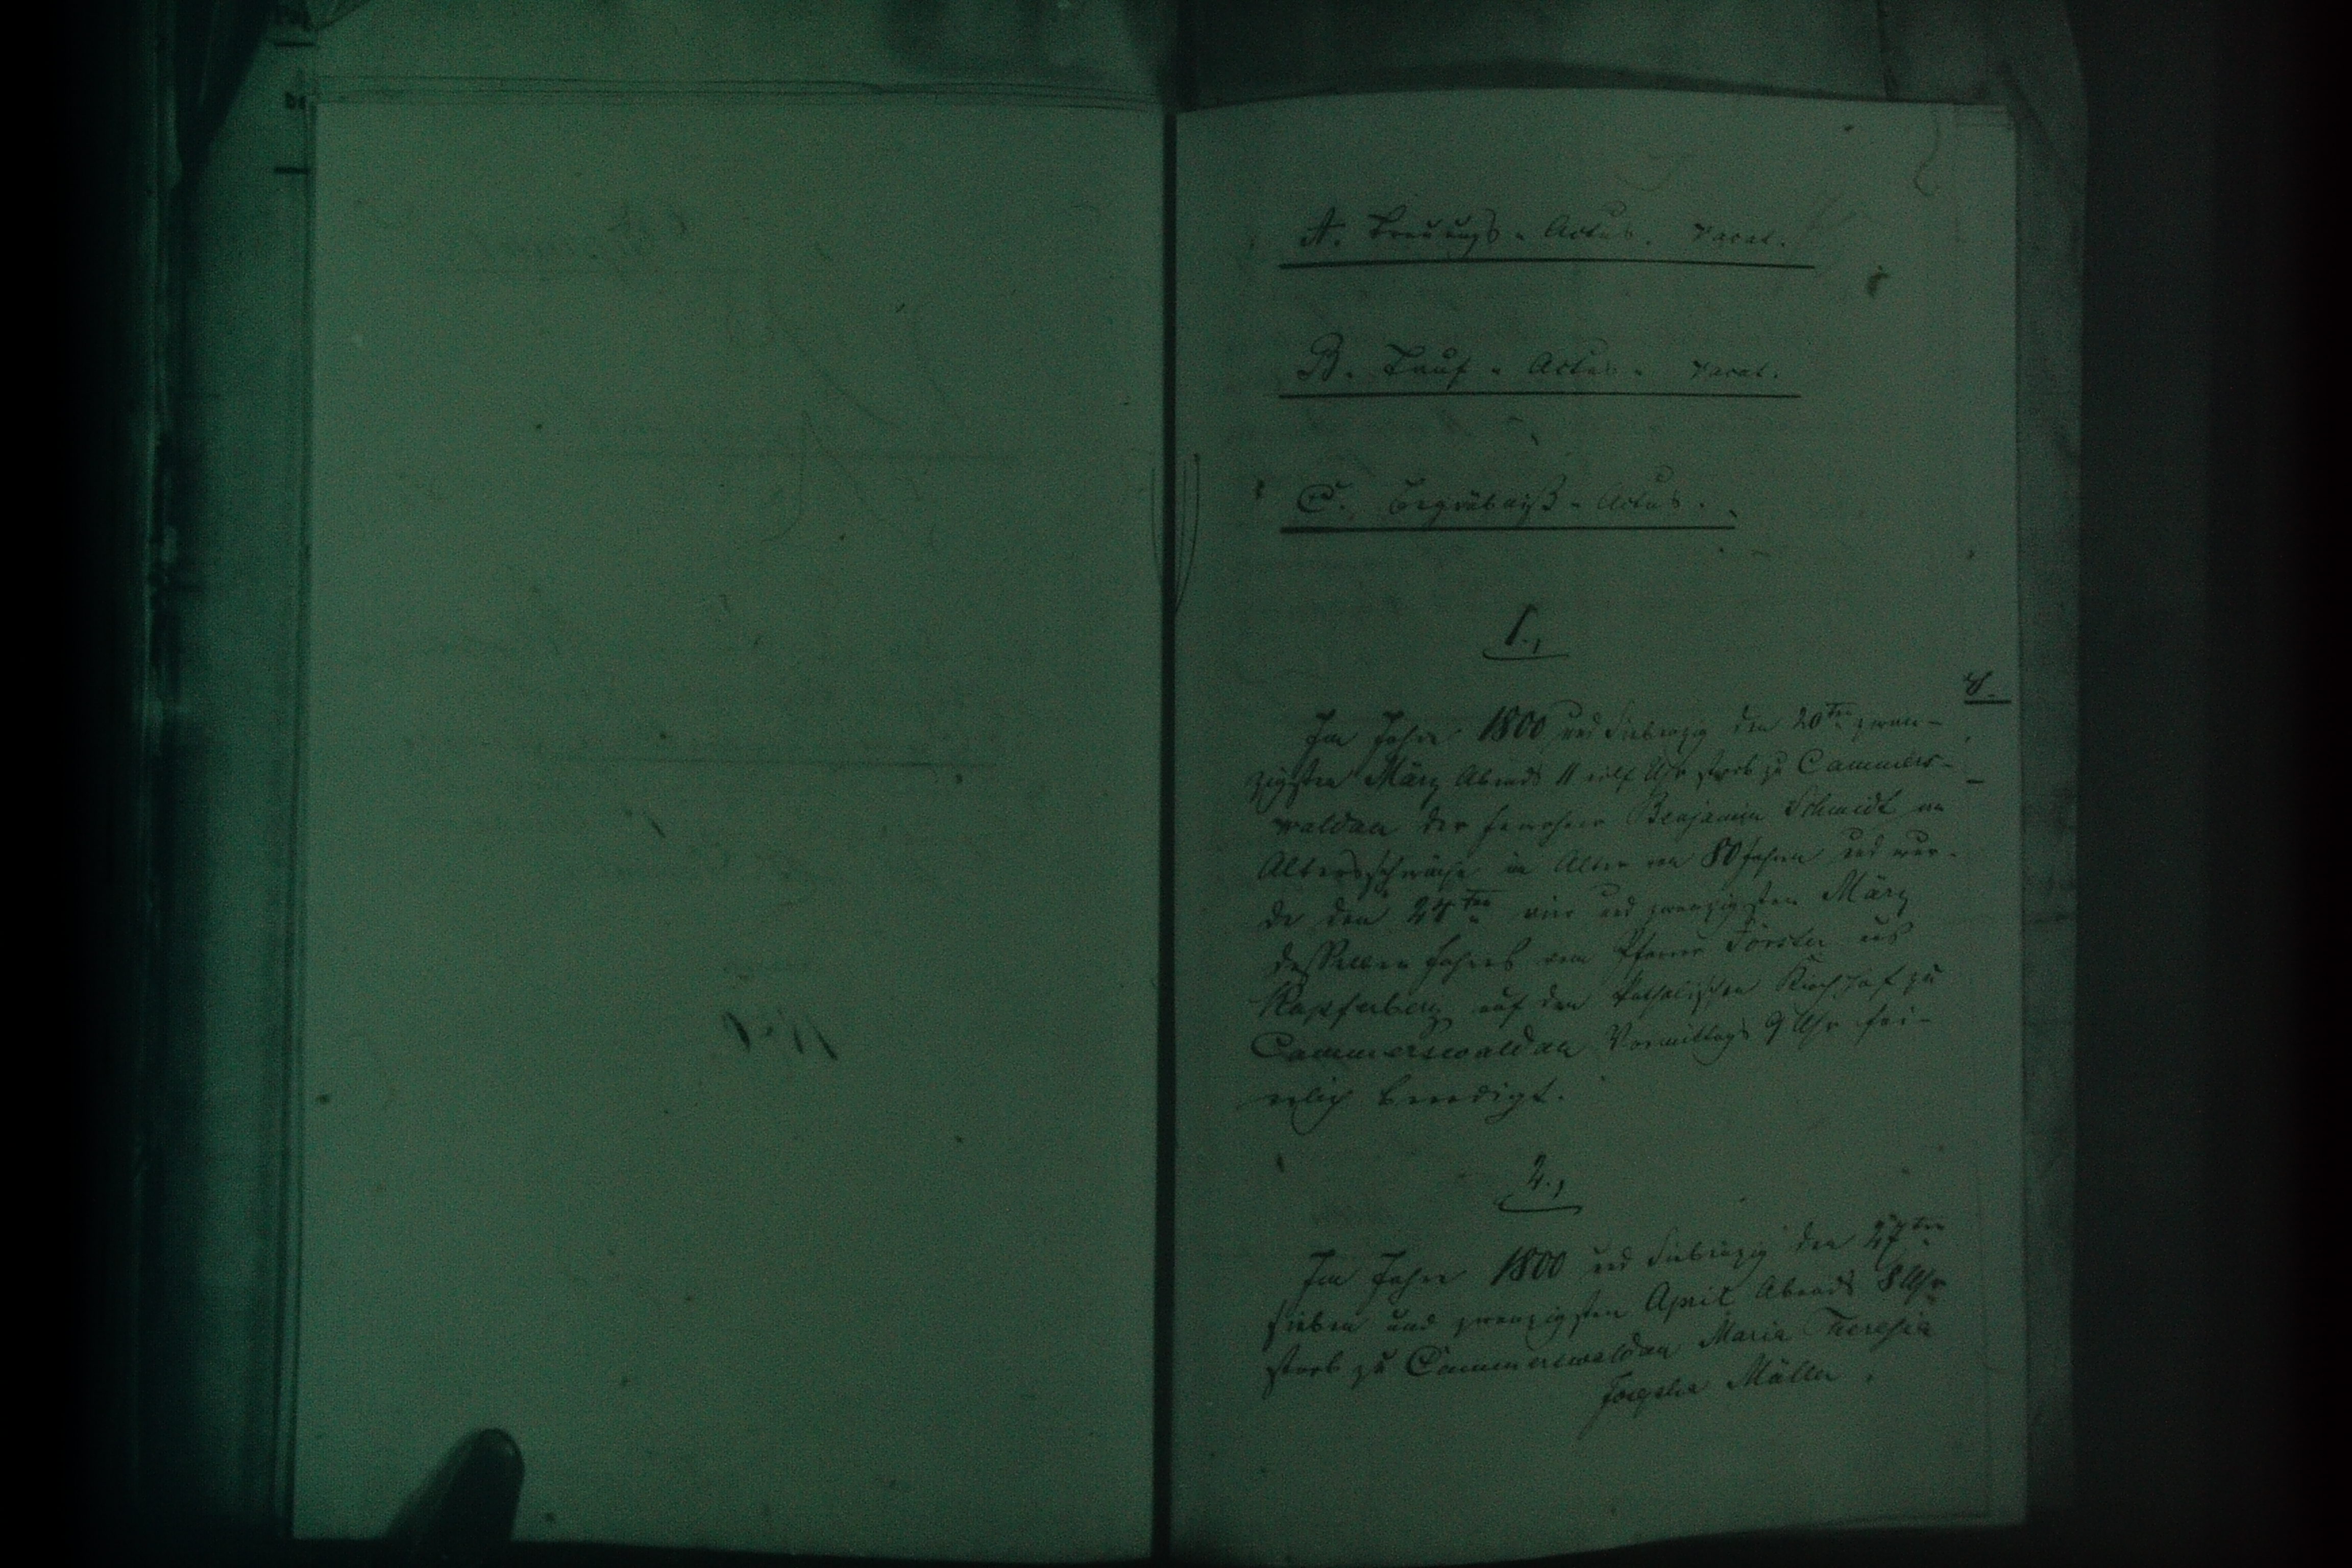 A. Trauungs-Actus. vacat.
B. Tauf-Actus. vacat.
C. Begräbniß-Actus.
1.,
Im Jahre 1800 und Siebenzig den 20ten zwan-
zigsten März Abends 11 eilf Uhr starb zu Cammers-
waldau der Inwohner Benjamin Schmidt an
Altersschwäche im Alter von 80 Jahren und wur-
de den 24ten vier und zwanzigsten März
desselben Jahres vom Pfarrer Förster aus
Kupferberg auf dem katholischen Kirchhof zu
Cammerswaldau Vormittags 9 Uhr fei-
erlich beerdigt.
2.,
Im Jahre 1800 und Siebenzig den 27ten
sieben und zwanzigsten April Abends 8 Uhr
starb zu Cammerswaldau Maria Theresia
Müller,